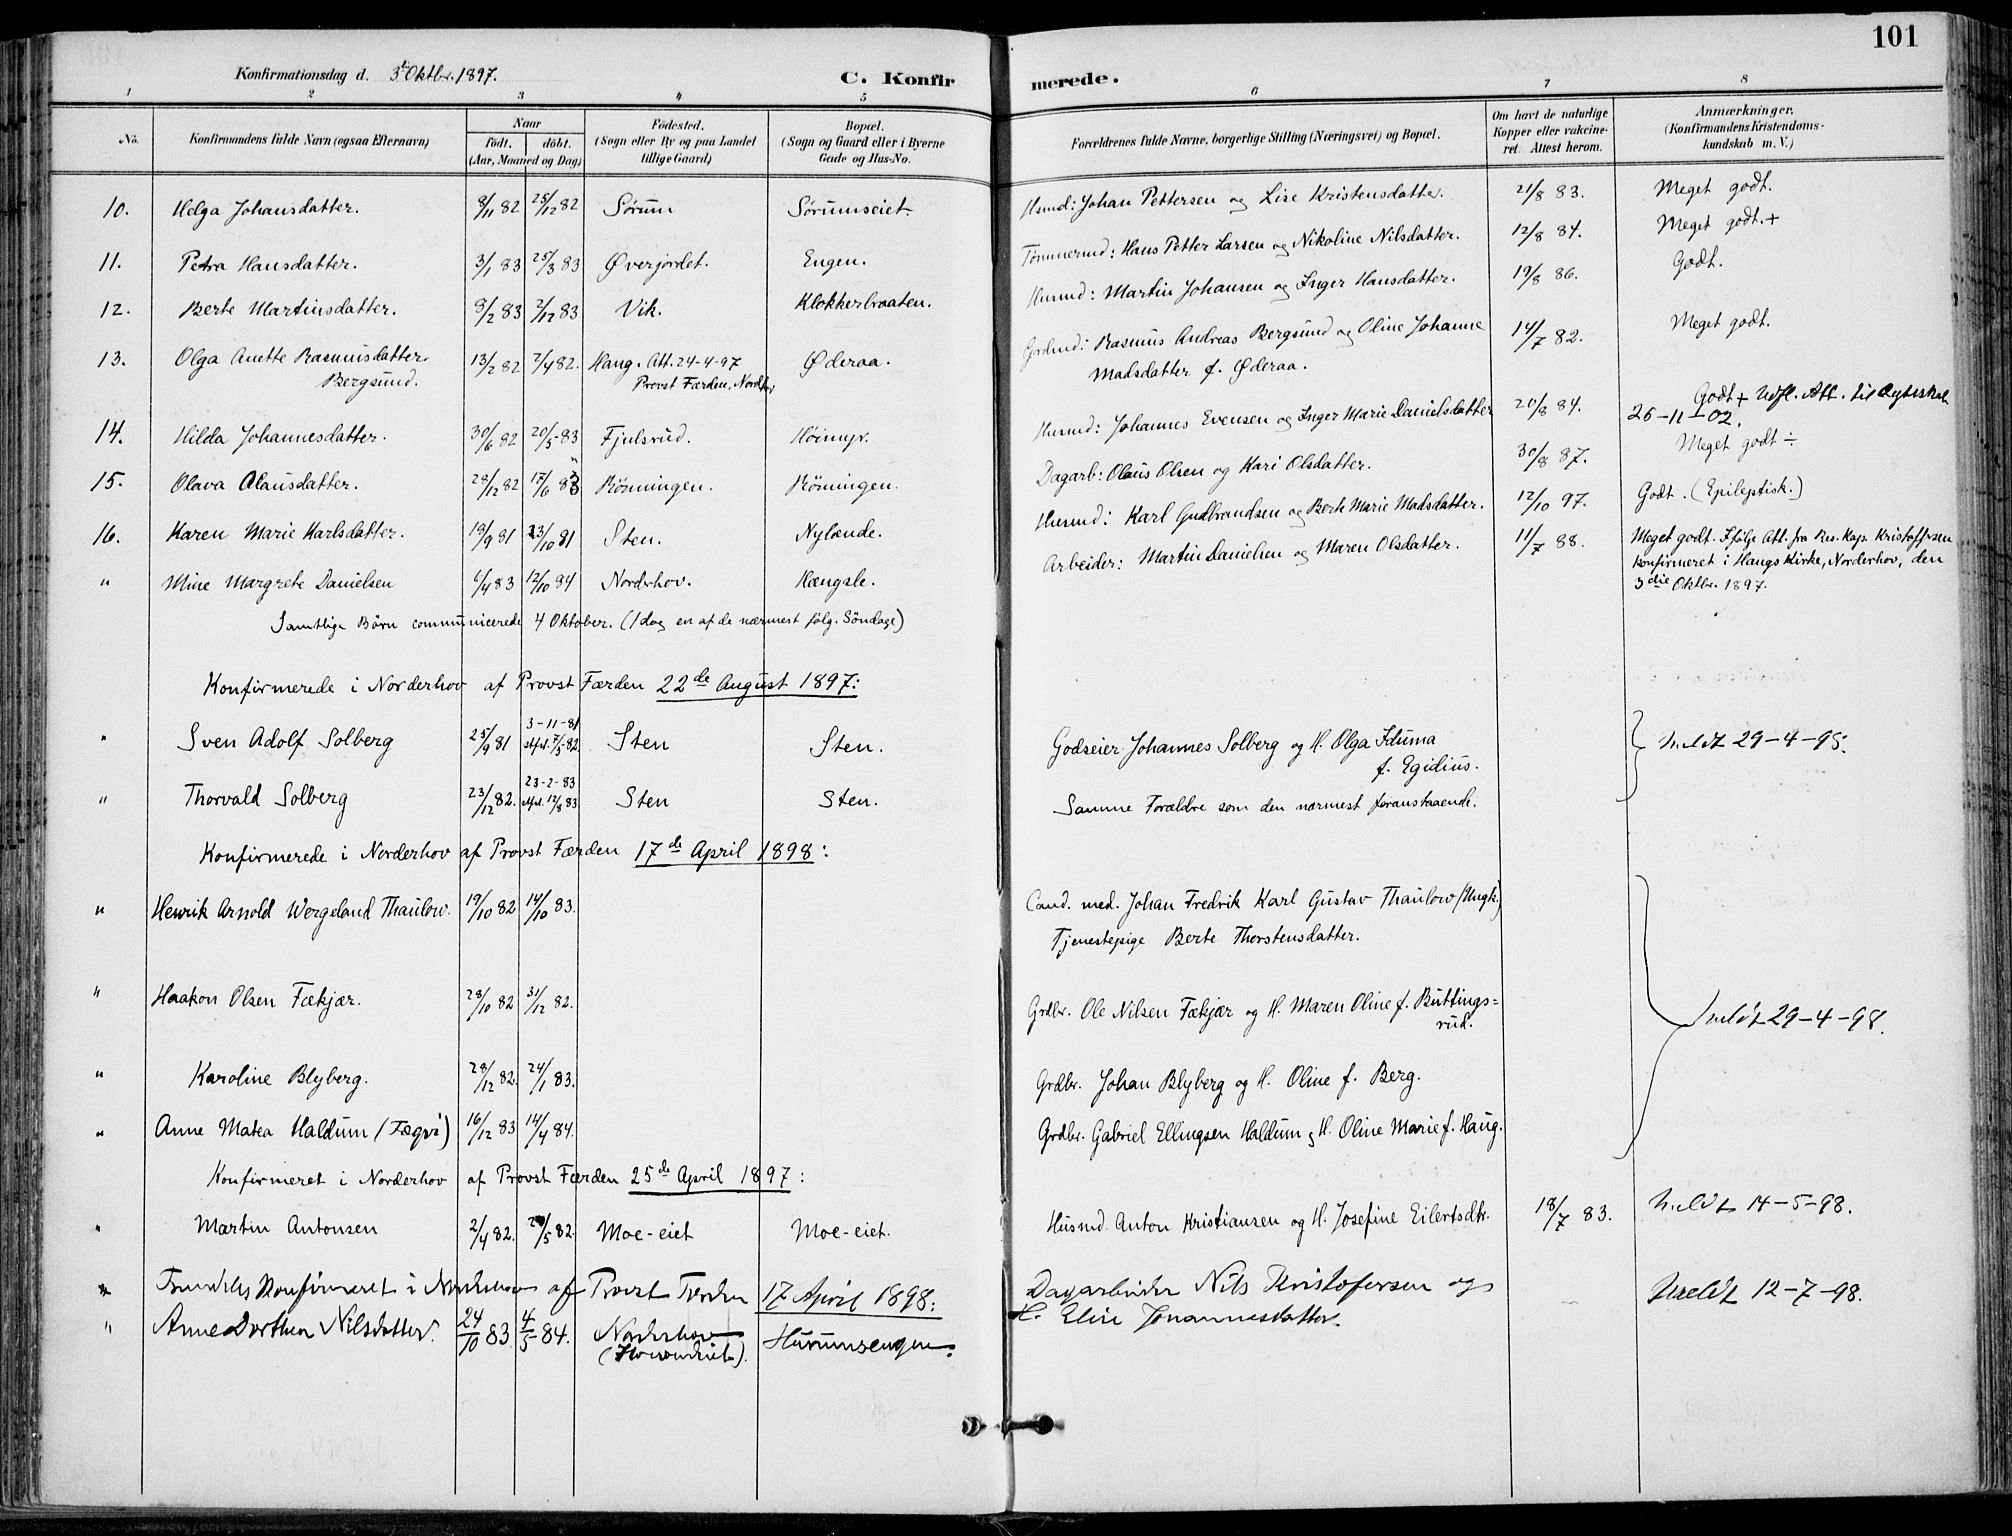 101
Konfirmationsdag d. 3. Oktbr. 1897.
C. Konfirmerede.
1 2 3 4 5 6 7 8
No.
Konfirmandens fulde Navn (ogsaa Efternavn)
Naar
født. døbt.
(Aar, Maaned og Dag)
Fødested.
(Sogn eller By og paa Landet
tillige Gaard)
Bopæl.
(Sogn og Gaard eller i Byerne
Gade og Hus-No.
Forældrenes fulde Navne, borgerlige Stilling (Næringsvei) og Bopæl.
Om havt de naturlige
Kopper eller vakcine-
ret. Attest herom.
Anmærkninger.
(Konfirmandens Kristendoms-
kundskab m. V.)
10. Helga Johansdatter. 8/11 82 25/12 82 Sørum Sørumseiet. Husmd: Johan Pettersen og Lise Kristensdatter. 21/8 83. Meget godt.
11. Petra Hansdatter. 3/1 83 25/3 83 Øverjordet. Engen. Tømmermd: Hans Petter Larsen og Nikoline Nilsdatter. 12/8 84. Meget godt.+
12. Berte Martinsdatter. 9/2 83 2/12 83 Vik. Klokkerbraaten. Husmd: Martin Johansen og Inger Hansdatter. 19/8 86. Godt.
13. Olga Anette Rasmusdatter 13/2 82 2/4 82. Haug. Att. 24-4-97 Øderaa. Grdmd: Rasmus Andreas Bergsund og Oline Johanne 14/7 82. Meget godt.
Bergsund. Provst Færden, Nordhv. Madsdatter f. Øderaa.
14. Hilda Johannesdatter. 30/6 82 20/5-83 Fjulsrud. Høimyr. Husmd: Johannes Evensen og Inger Marie Danielsdatter 20/8 84. Godt + Udfl. Att. til
26-11-02.
15. Olava Olausdatter. 28/12 82 17/6 83 Rönningen. Rönningen. Dagarb: Olaus Olsen og Kari Olsdatter. 30/8 87. Meget godt ÷
16. Karen Marie Karlsdatter. 19/9 81 23/10 81 Sten. Nylænde. Husmd: Karl Gudbrandsen og Berte Marie Madsdatter. 12/10 97. Godt. (Epileptisk.)
" Mine Margrete Danielsen 6/4 83 12/10 84 Norderhov. Hængsle. Arbeider: Martin Danielsen og Maren Olsdatter. 11/7 88. Meget godt. Ifölge Att. fra Res. Kap. Kristoffersen
konfirmeret i Haugs Kirke, Norderhov, den
3die Oktbr. 1897.
Samtlige Börn communicerede 4 Oktober. (1 dag en af de nærmest fölg. Söndage)
Konfirmerede i Norderhov af Provst Færden 22de August 1897:
" Sven Adolf Solberg 25/9 81 3-11-81 7/5-82 Sten Sten. Godseier Johannes Solberg og H. Olga Iduma
f. Egidius. meldt 29-4-98.
" Thorvald Solberg 23/12 82. 23-2-83 12/8 83 Sten Sten. Samme Forældre som den nærmest foranstaaende.
Konfirmerede i Norderhov af Provst Færden 17de April 1898:
" Henrik Arnold Wergeland Thaulow. 19/10 82 14/10 83. Cand. med. Johan Fredrik Karl Gustav Thaulow (Ungk.)
Tjenestepige Berte Thorstensdatter.
" Haakon Olsen Fækjær. 28/10 82 31/12 82. Grdbr. Ole Nilsen Fækjær og H. Maren Oline f. Büttings=
rud. meldt 29-4-98.
" Karoline Blyberg. 28/12 82. 24/1 83. Grdbr. Johan Blyberg og H. Oline f. Berg.
" Anne Matea Haldum (Fægri) 16/12 83 14/4 84. Grdbr. Gabriel Ellingsen Haldum og H. Oline Marie f. Haug.
Konfirmeret i Norderhov af Provst Færden 25de April 1897:
" Martin Antonsen 2/4 82. 5 82. Moe-eiet Moe-eiet. Husmd. Anton Kristiansen og H. Josefine Eilertsdtr. 18/7 83. meldt 14-5-98.
" Konfirmeret i Norderhov af Provst Færden 17 April 1898: Dagarbeider Nils Kristofersen og Meldt 12-7-98.
" Anne Dorthea Nilsdatter. 24/10 83 4/5 84. Norderhov Hurumsengen. H. Elise Johannesdatter.